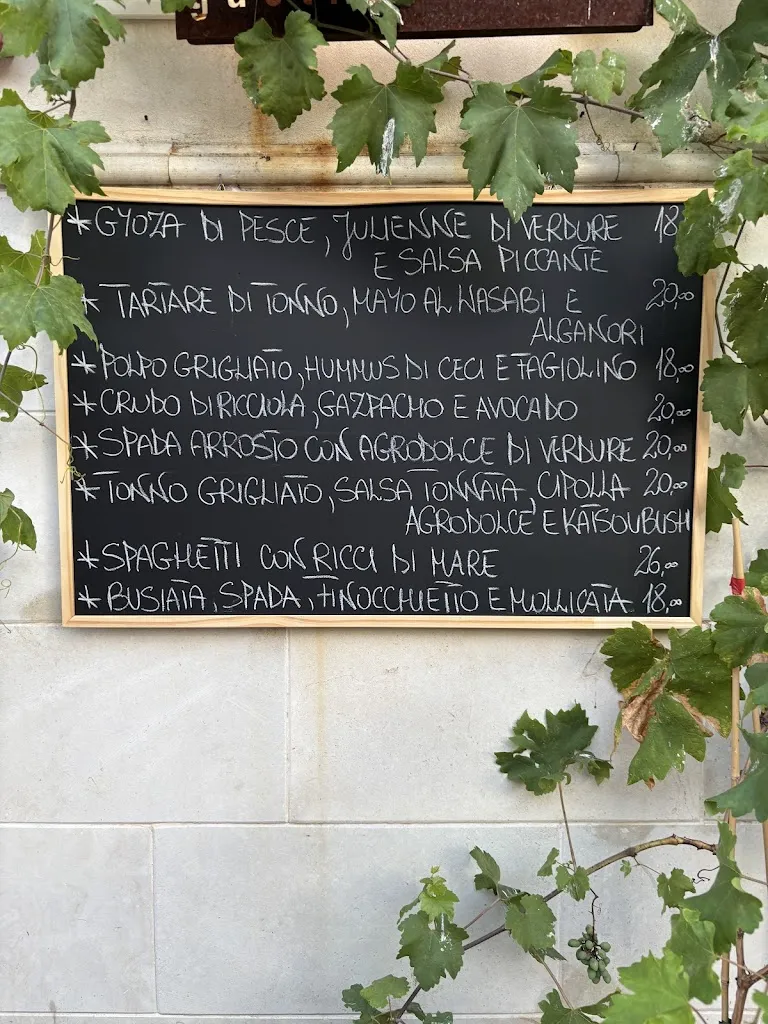 *GYOZA DI PESCE, JULIENNE DI VERDURE 18
E SALSA PICCANTE
* TARTARE DI TONNO, MAYO AL WASABI E 20,00
ALGANORI
*POLPO GRIGLIATO, HUMMUS DI CECI E FAGIOLINO 18,00
*CRUDO DI RICCIOLA, GAZPACHO E AVOCADO 20,00
*SPADA ARROSTO CON AGRODOLCE DI VERDURE 20,00
*TONNO GRIGLIATO, SALSA TONNATA, CIPOLLA 20,00
AGRODOLCE E KATSOUBUSHI
*SPAGHETTI CON RICCI DI MARE 26,00
*BUSIATA, SPADA, FINOCCHIETTO E MOLLICATA 18,00